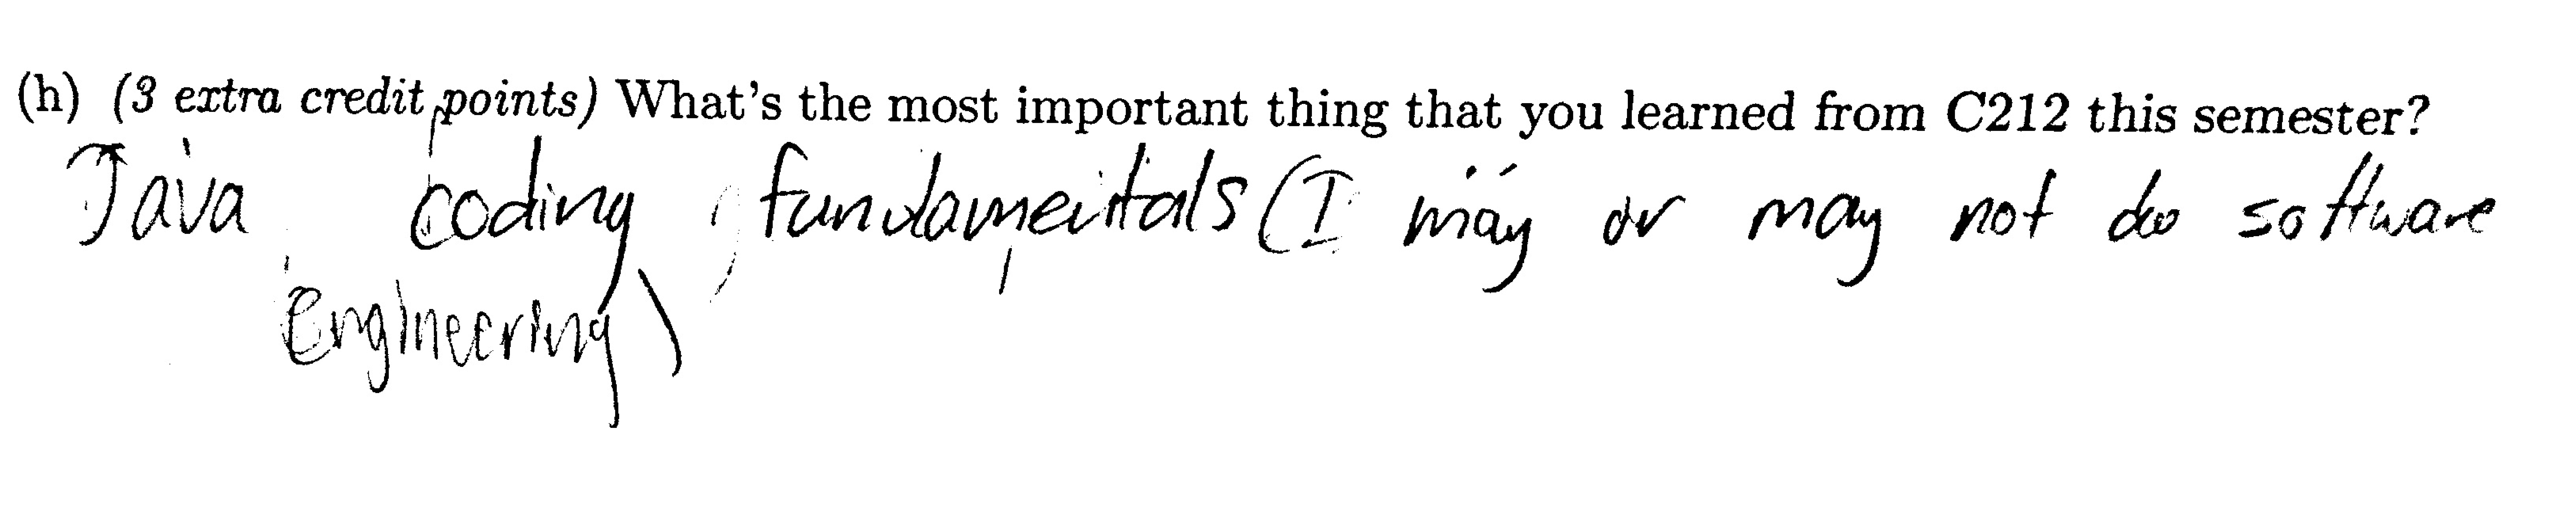 (h) (3 extra credit points) What's the most important thing that you learned from C212 this semester?
Java coding fundamentals (I may or may not do software
Engineering)